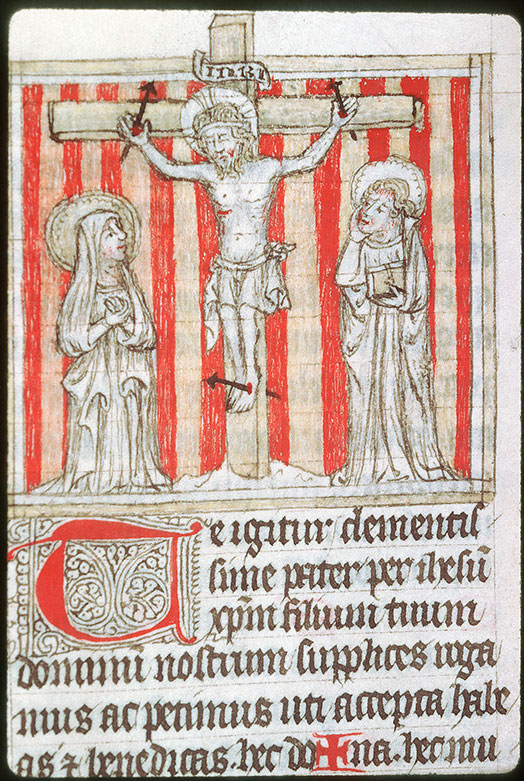 INRI
Te igitur clementis
sime pater per ihesū
xp̄m filium tuum
dominū nostrum supplices roga
mus ac petimus uti accepta habe
as ⁊ benedicas. hec do✠na. hec mu